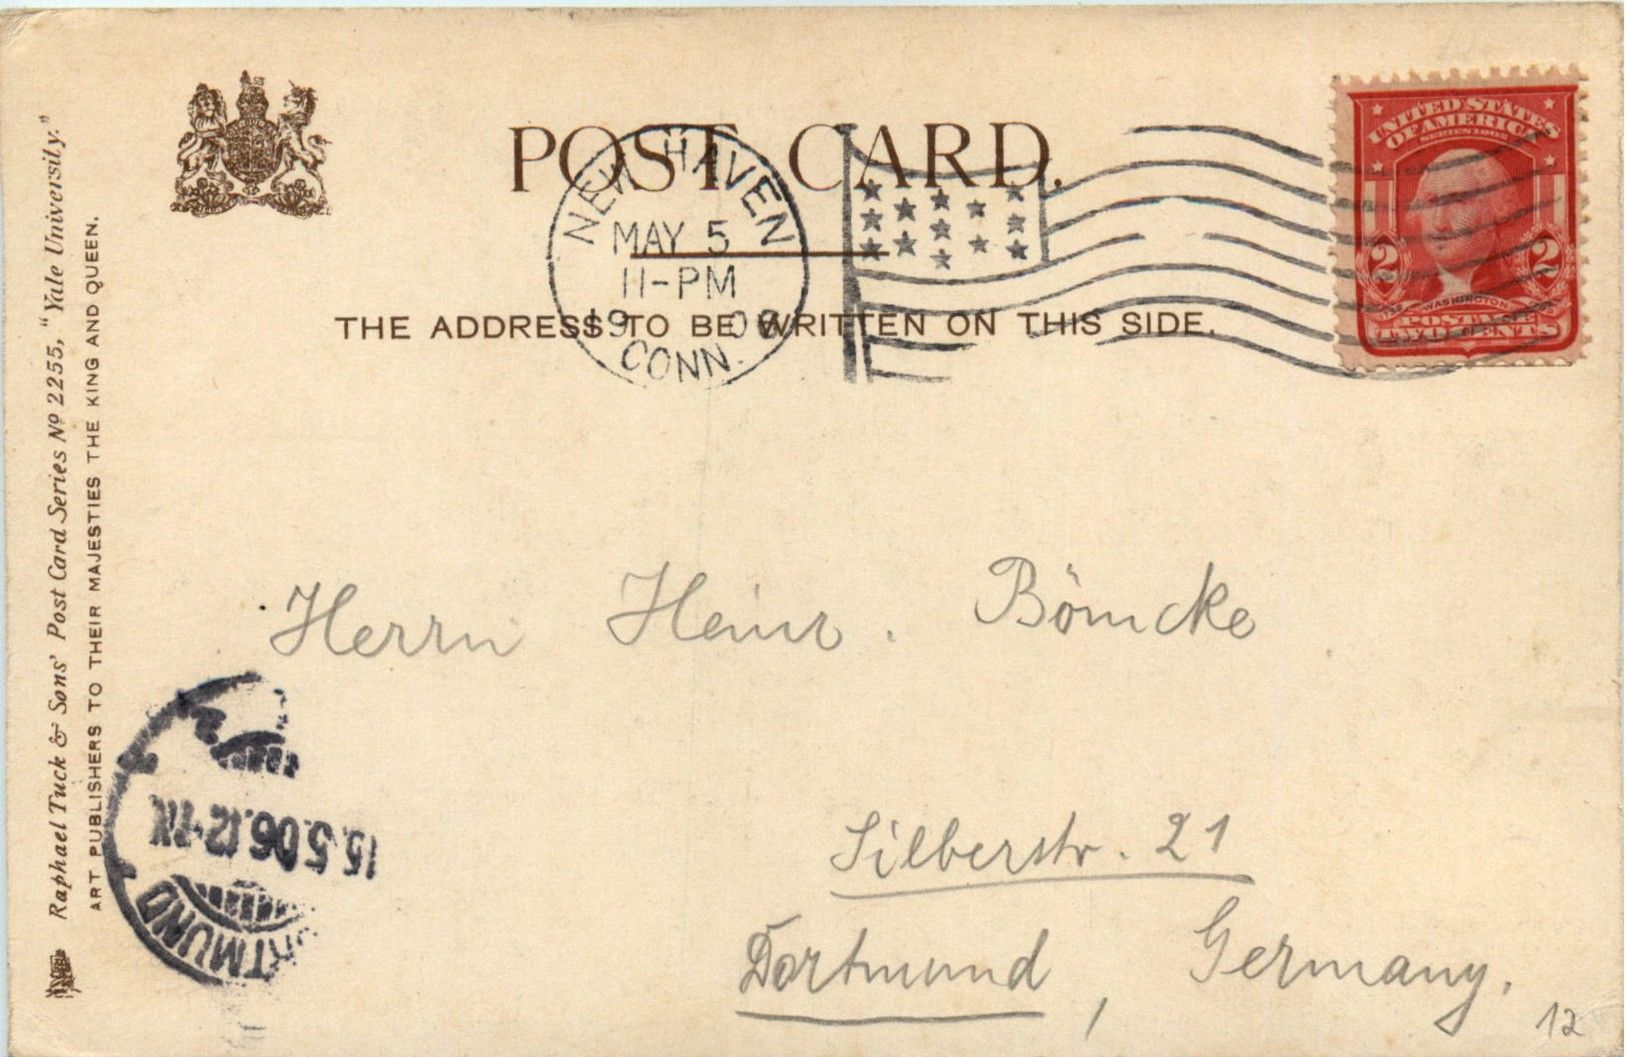 POST CARD.
THE ADDRESS TO BE WRITTEN ON THIS SIDE.
NEW HAVEN
MAY 5
11-PM
1906
CONN.
UNITED STATES
OF AMERICA
SERIES 1902
2 2
WASHINGTON
POSTAGE
TWO CENTS
Raphael Tuck & Sons' Post Card Series No 2255, "Yale University."
ART PUBLISHERS TO THEIR MAJESTIES THE KING AND QUEEN.
Herrn Heinr. Bömcke
Silberstr. 21
Dortmund, Germany.
15.5.06.12-1N
DORTMUND
12